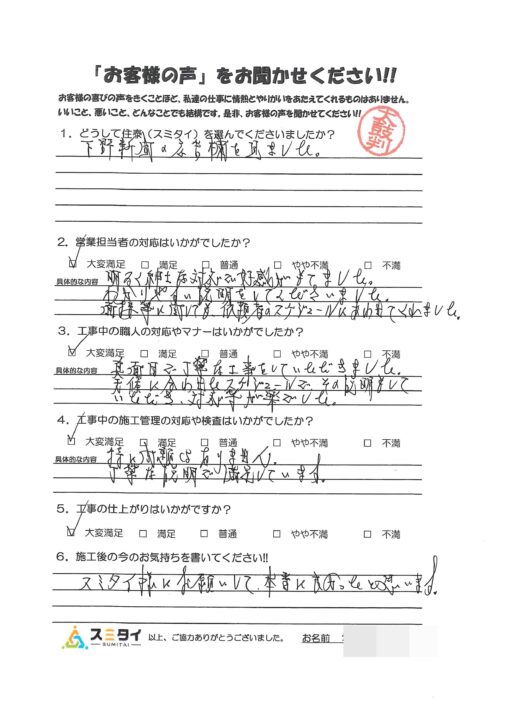 「お客様の声」をお聞かせください!!
お客様の喜びの声をきくことほど、私達の仕事に情熱とやりがいをあたえてくれるものはありません。
いいこと、悪いこと、どんなことでも結構です。是非、お客様の声を聞かせてください!!
太鼓判
1. どうして住泰（スミタイ）を選んでくださいましたか？
下野新聞の広告欄を見ました。
2. 営業担当者の対応はいかがでしたか？
☑ 大変満足 □ 満足 □ 普通 □ やや不満 □ 不満
具体的な内容 明るく紳士な対応で好感がもてました。
わかりやすい説明をしてくださいました。
面談等に関しても、依頼者のスケジュールにあわせてくれました。
3. 工事中の職人の対応やマナーはいかがでしたか？
☑ 大変満足 □ 満足 □ 普通 □ やや不満 □ 不満
具体的な内容 真面目で丁寧な工事をしていただきました。
天候に合わせたスケジュールで、その説明もして
いただき、対応等が楽でした。
4. 工事中の施工管理の対応や検査はいかがでしたか？
☑ 大変満足 □ 満足 □ 普通 □ やや不満 □ 不満
具体的な内容 特に問題はありません。
丁寧な説明で満足しています。
5. 工事の仕上がりはいかがですか？
☑ 大変満足 □ 満足 □ 普通 □ やや不満 □ 不満
6. 施工後の今のお気持ちを書いてください!!
スミタイ様にお願いして、本当に良かったと思います。
スミタイ
SUMITAI
以上、ご協力ありがとうございました。 お名前